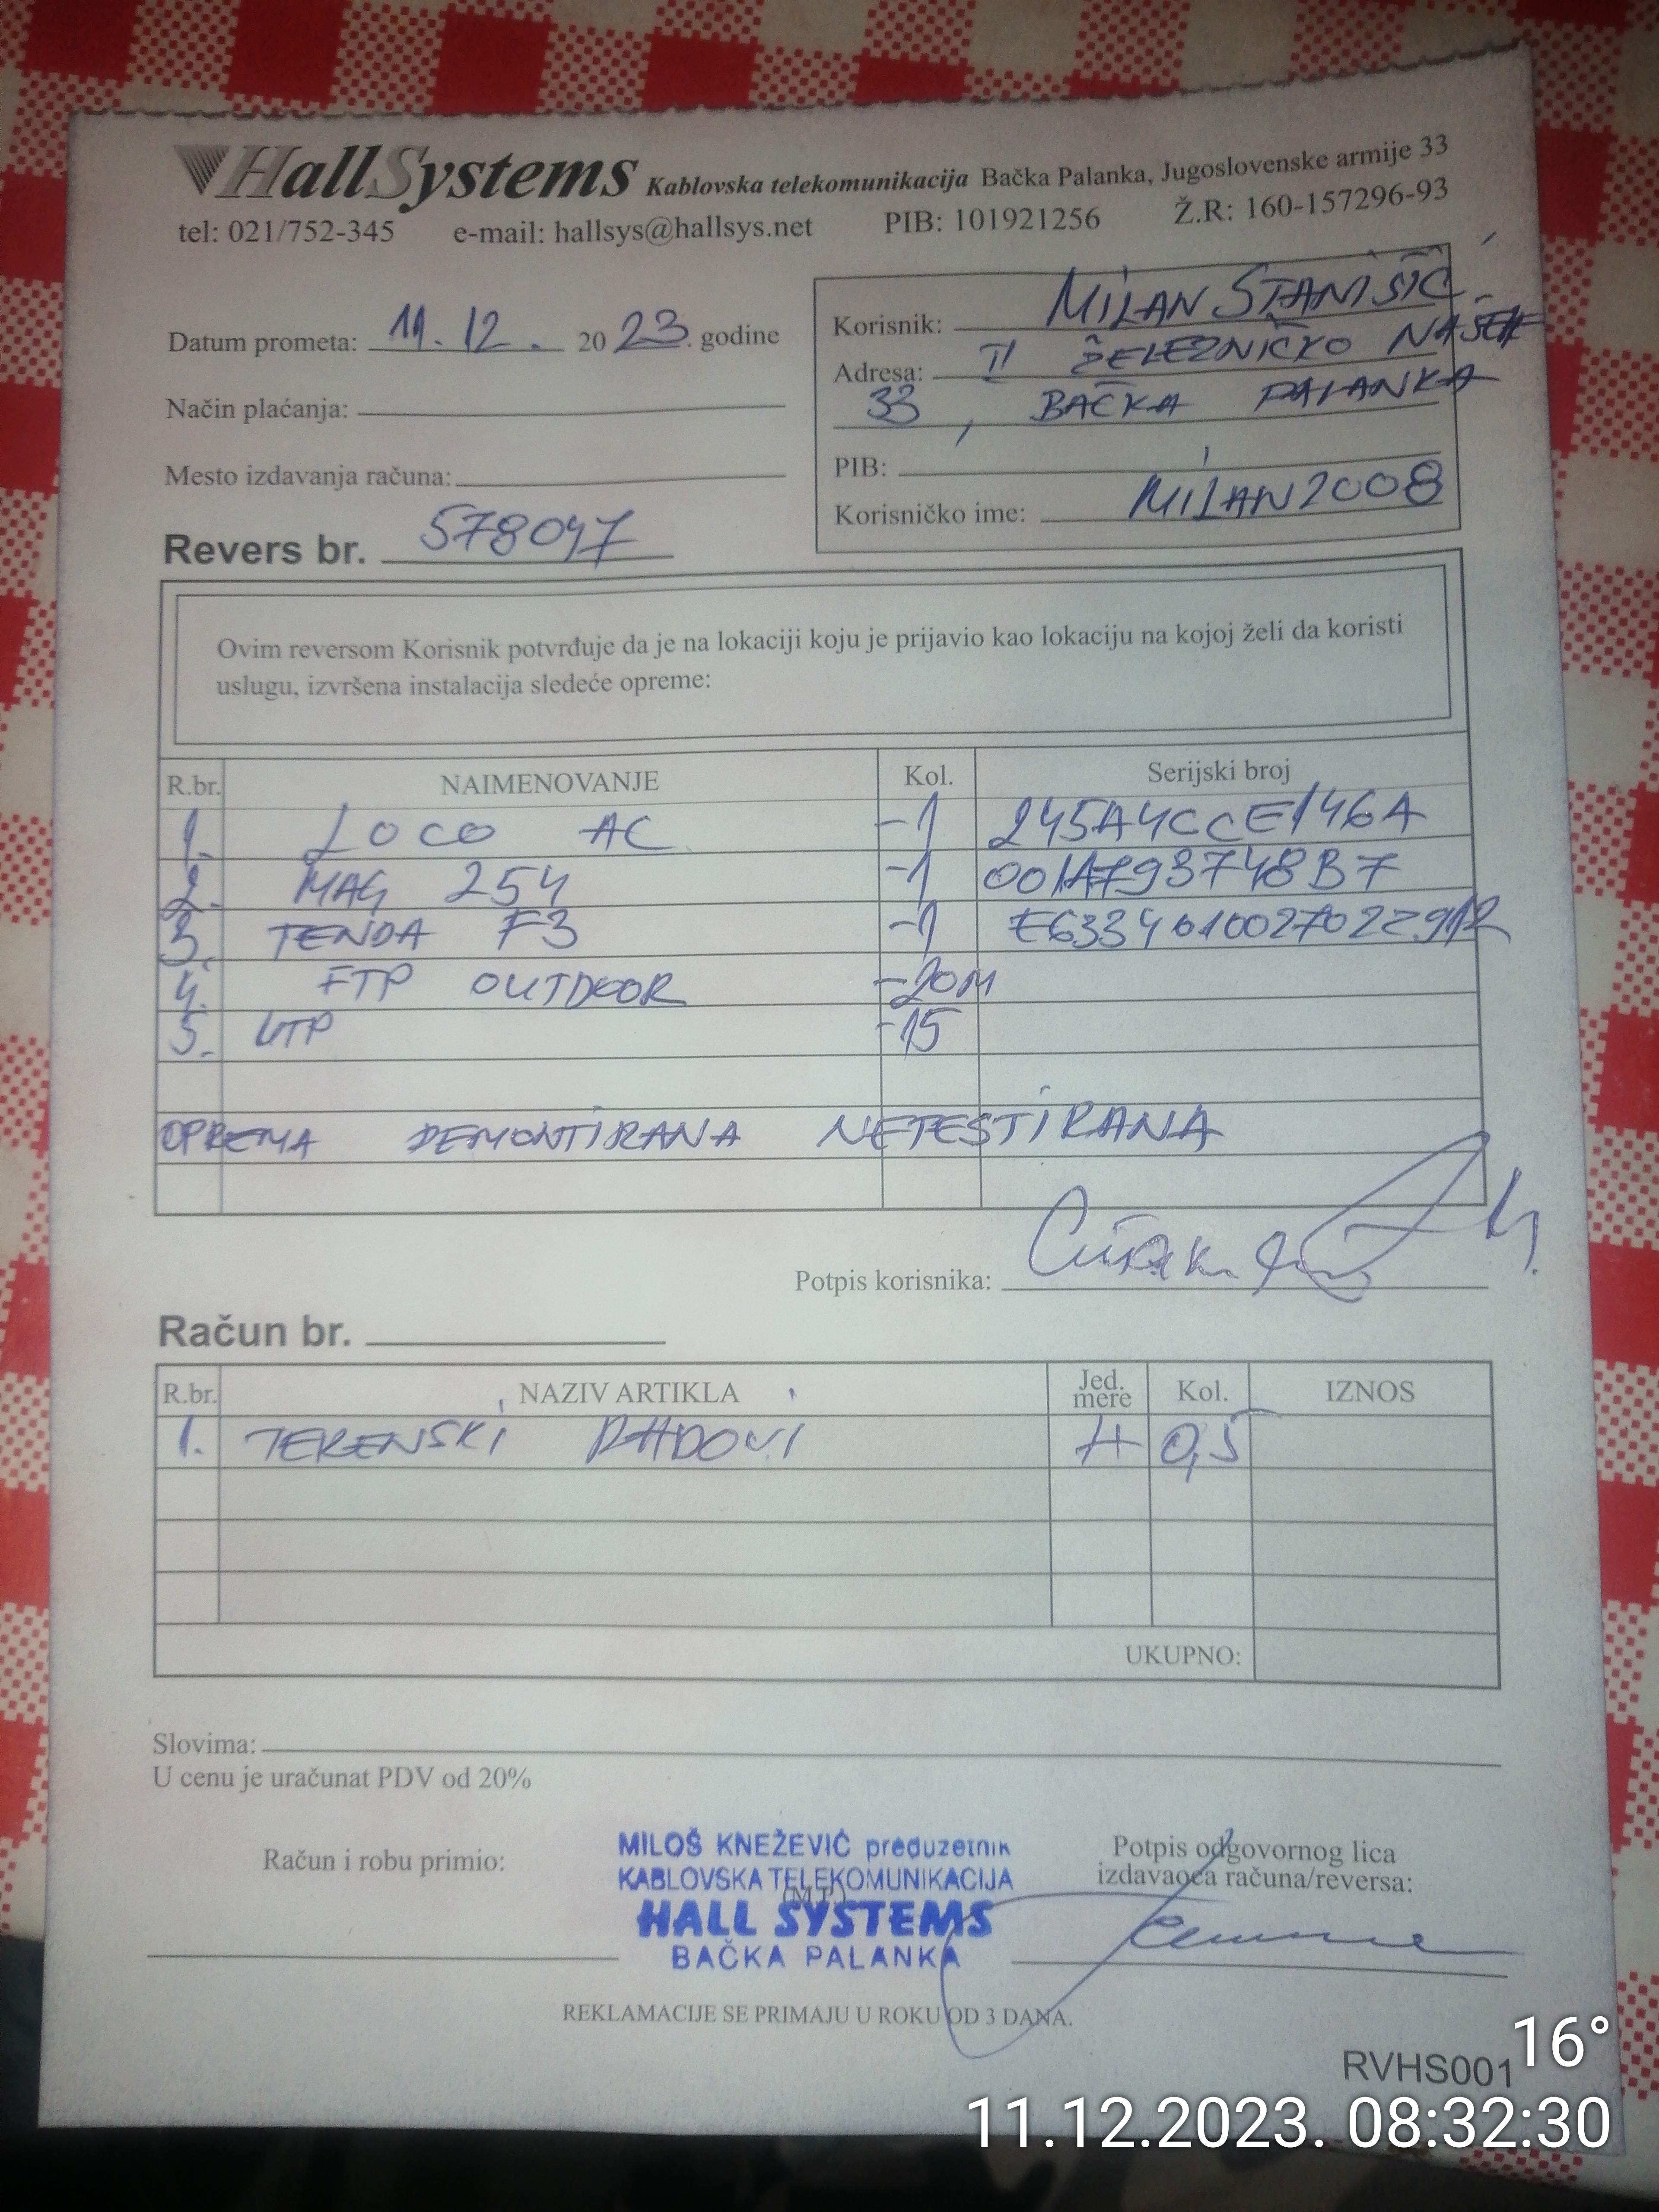 HallSystems Kablovska telekomunikacija Bačka Palanka, Jugoslovenske armije 33
tel: 021/752-345 e-mail: hallsys@hallsys.net PIB: 101921256 Ž.R: 160-157296-93
Datum prometa: 11.12. 2023. godine
Način plaćanja:
Mesto izdavanja računa:
Revers br. 578047
Korisnik: MILAN STANIŠIĆ
Adresa: II ŽELEZNIČKO NASELJE
33, BAČKA PALANKA
PIB:
Korisničko ime: MILAN2008
Ovim reversom Korisnik potvrđuje da je na lokaciji koju je prijavio kao lokaciju na kojoj želi da koristi
uslugu, izvršena instalacija sledeće opreme:
R.br. NAIMENOVANJE Kol. Serijski broj
1. LOCO AC -1 245A4CCE146A
2. MAG 254 -1 001A793748B7
3. TENDA F3 -1
4. FTP OUTDOOR -20M
5. UTP -15
OPREMA DEMONTIRANA NETESTIRANA
Potpis korisnika:
Račun br.
R.br. NAZIV ARTIKLA Jed. mere Kol. IZNOS
1. TERENSKI RADOVI H 0,5
UKUPNO:
Slovima:
U cenu je uračunat PDV od 20%
Račun i robu primio:
MILOŠ KNEŽEVIĆ preduzetnik
KABLOVSKA TELEKOMUNIKACIJA
(M.P.)
HALL SYSTEMS
BAČKA PALANKA
Potpis odgovornog lica
izdavaoca računa/reversa:
REKLAMACIJE SE PRIMAJU U ROKU OD 3 DANA.
RVHS001
16°
11.12.2023. 08:32:30